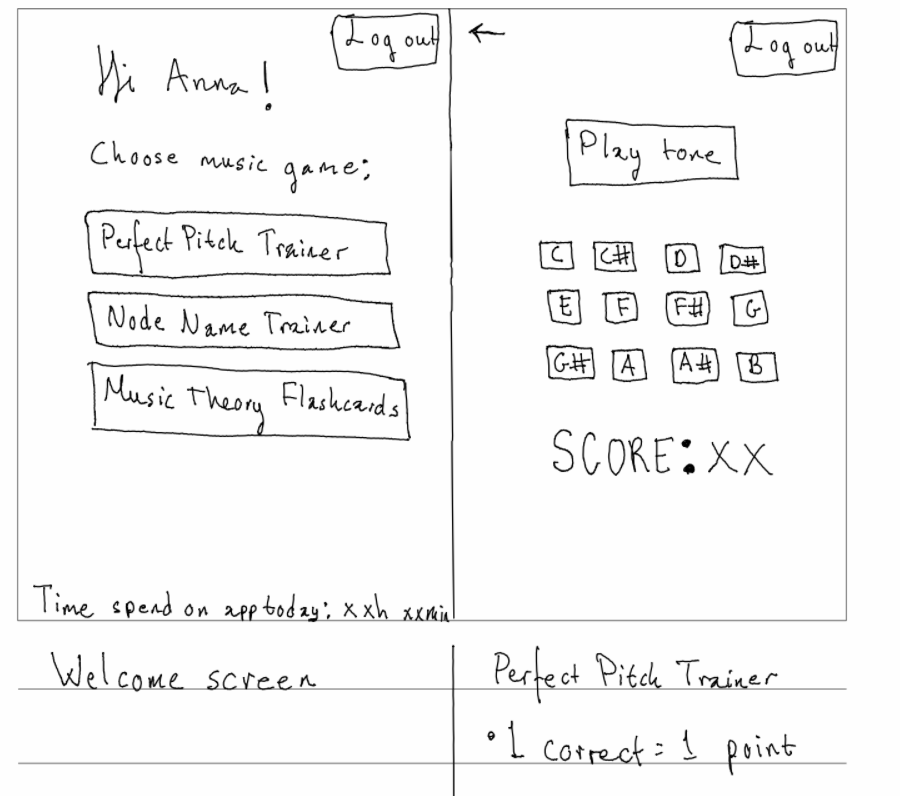 Log out
Hi Anna!
Choose music game:
Perfect Pitch Trainer
Node Name Trainer
Music Theory Flashcards
Time spend on app today: xxh xxmin
Welcome screen
←
Log out
Play tone
C C# D D#
E F F# G
G# A A# B
SCORE: XX
Perfect Pitch Trainer
• 1 correct = 1 point